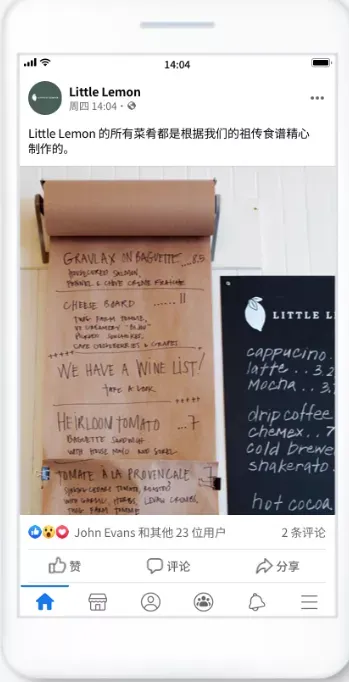 14:04
Little Lemon
周四 14:04 ·
Little Lemon 的所有菜肴都是根据我们的祖传食谱精心
制作的。
GRAVLAX ON BAGUETTE...8.5
HOUSECURED SALMON,
FENNEL & CHIVE CREME FRAICHE
CHEESE BOARD ......11
WE HAVE A WINE LIST!
TAKE A LOOK
HEIRLOOM TOMATO ...7
BAGUETTE SANDWICH
WITH HOUSE MAYO AND
TOMATE A LA PROVENCALE ...7
LITTLE L
cappucino.
latte..3.2
Mocha..3.
drip coffee
chemex..7
cold brewe
shakerato.
hot cocoa
John Evans 和其他 23 位用户
2 条评论
赞
评论
分享